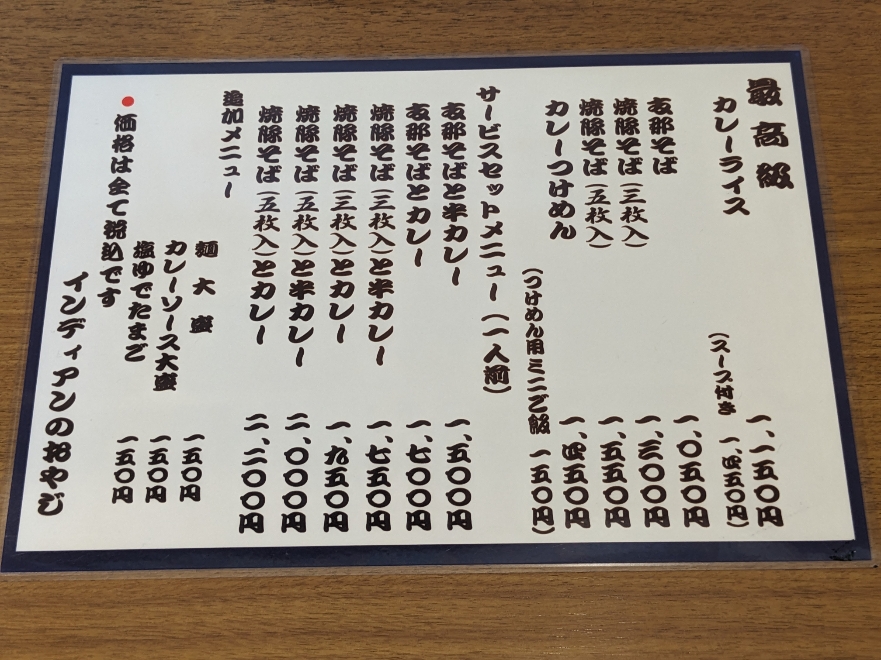 最高級
カレーライス 一、一五〇円
(スープ付き 一、四五〇円)
支那そば 一、〇五〇円
焼豚そば(三枚入) 一、三〇〇円
焼豚そば(五枚入) 一、五五〇円
カレーつけめん 一、四五〇円
(つけめん用ミニご飯 一五〇円)
サービスセットメニュー(一人前)
支那そばと半カレー 一、五〇〇円
支那そばとカレー 一、七〇〇円
焼豚そば(三枚入)と半カレー 一、七五〇円
焼豚そば(三枚入)とカレー 一、九五〇円
焼豚そば(五枚入)と半カレー 二、〇〇〇円
焼豚そば(五枚入)とカレー 二、二〇〇円
追加メニュー
麺大盛 一五〇円
カレーソース大盛 一五〇円
塩ゆでたまご 一五〇円
●価格は全て税込です
インディアンのおやじ